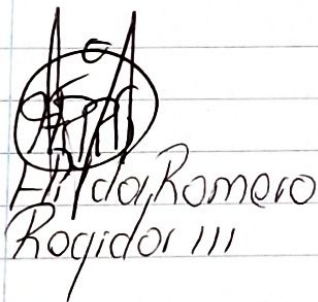 Hilda Romero
Regidor III